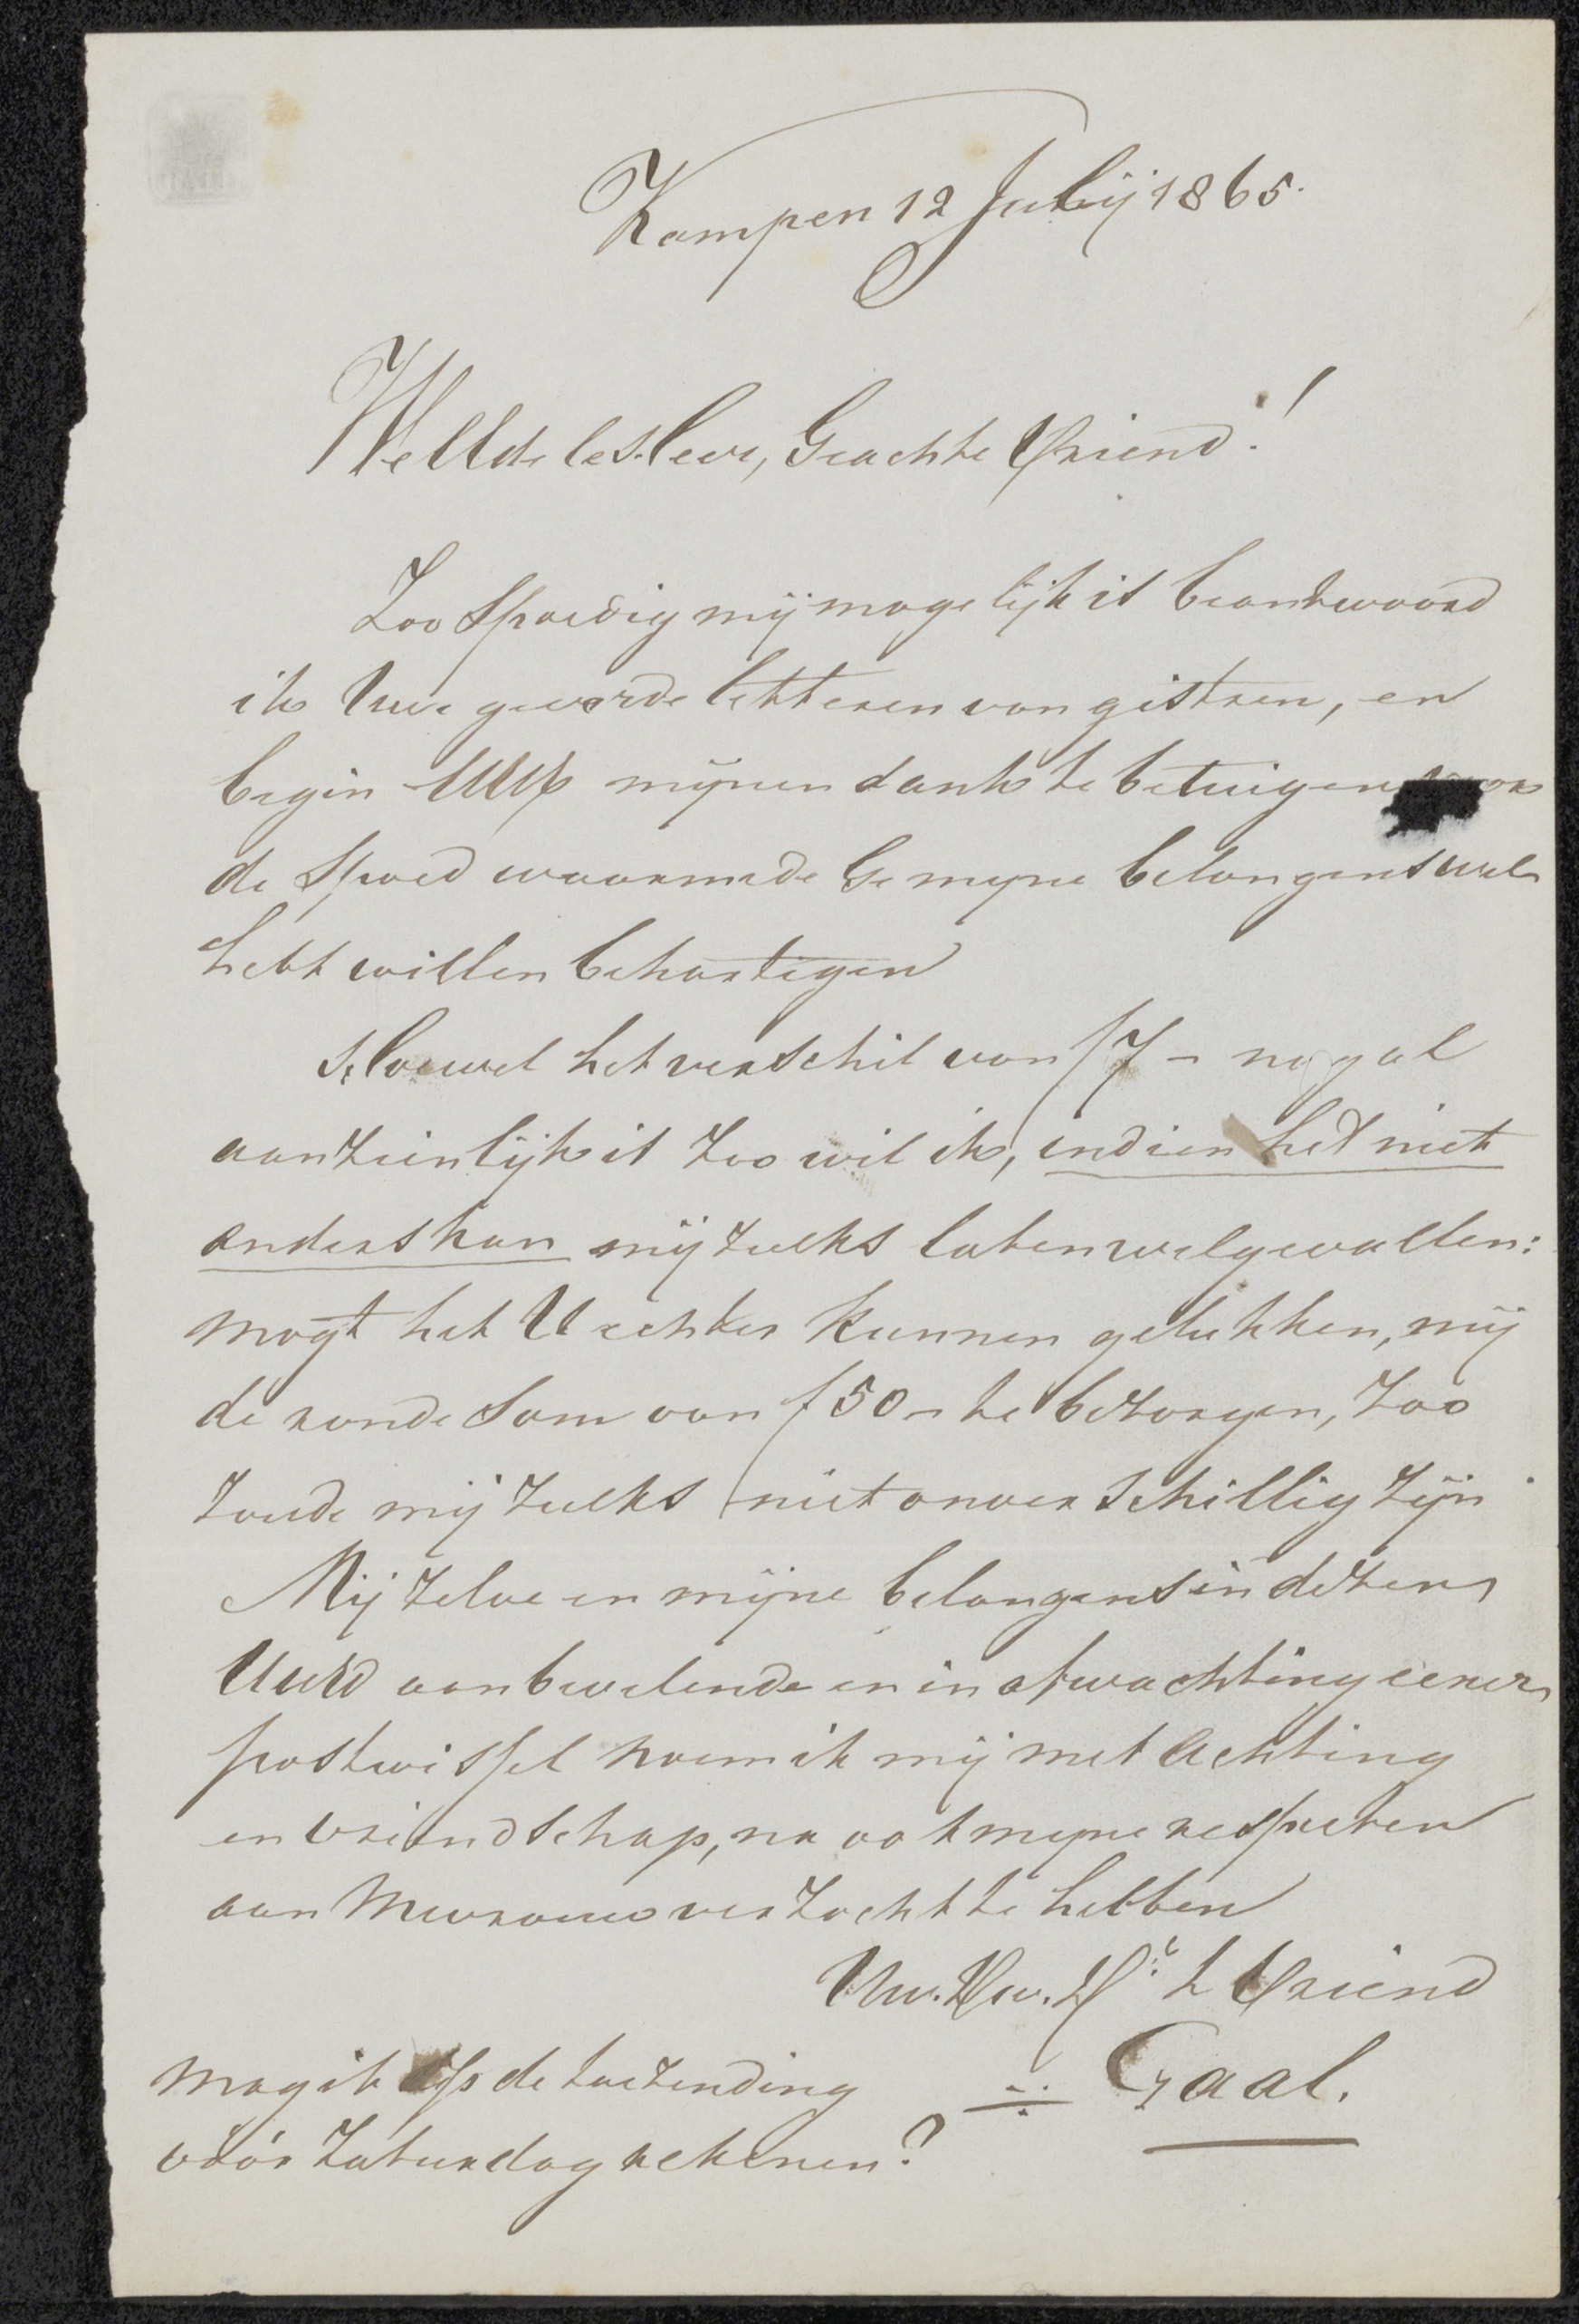 Kampen 12 Julij 1865.
WelEdele Heer, Geachte Vriend!
Zoo spoedig mij mogelijk is beantwoord
ik Uwe geeerde letteren van gistren, en
begin UEd mijnen dank te betuigen voor
de spoed waarmede Ge mijne belangens wel
hebt willen behartigen
Hoewel het verschil van f 7 - nog al
aanzienlijk is zoo wil ik, indien het niet
anders kan mij zulks laten welgevallen:
mogt het U echter kunnen gelukken, mij
de ronde som van f 50 - te bezorgen, zoo
zoude mij zulks niet onverschillig zijn
Mij zelve en mijne belangens in dezen
UwEd aanbevelende en in afwachting eener
postwissel noem ik mij met achting
en vriendschap, na ook mijne respecten
aan Mevrouw verzocht te hebben
Uw. Dw. Dr. & Vriend
Gaal.
mag ik op de toezending
vóór Zaturdag rekenen?